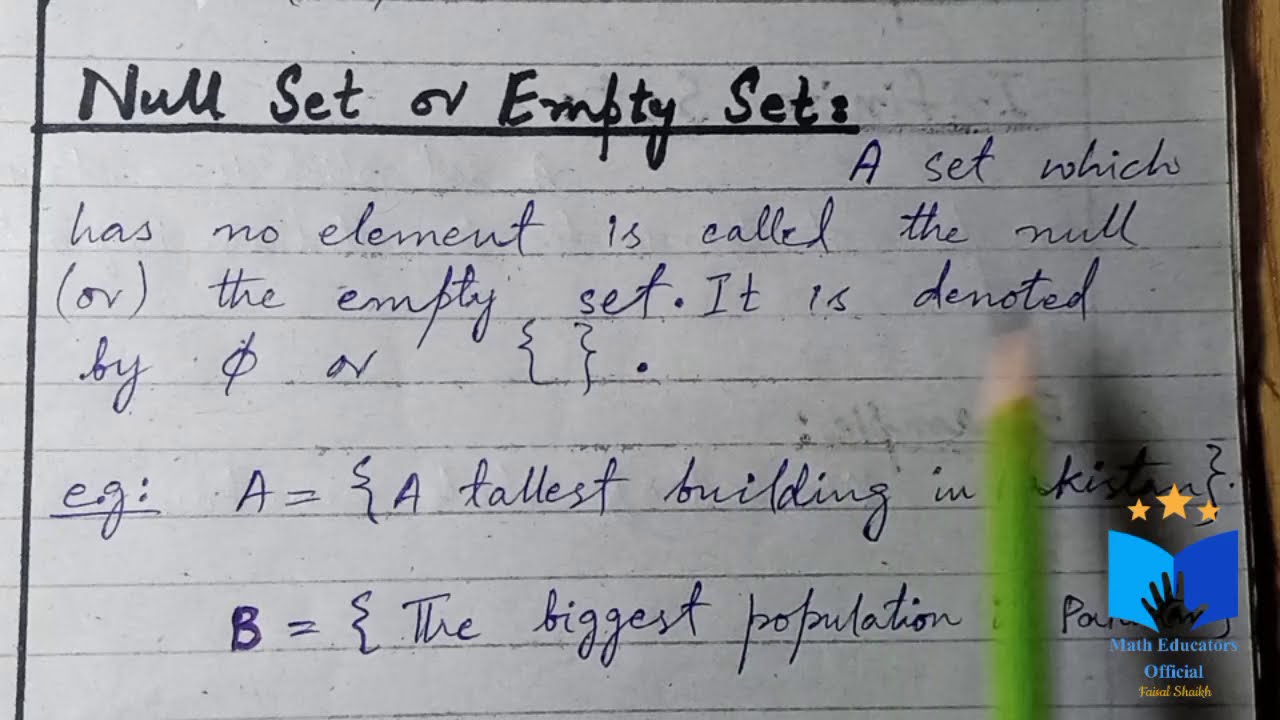 Null Set or Empty Set:
A set which
has no element is called the null
(or) the empty set. It is denoted
by ϕ or { } .
eg: A = { A tallest building in }.
B = { The biggest population
Math Educators
Official
Faisal Shaikh